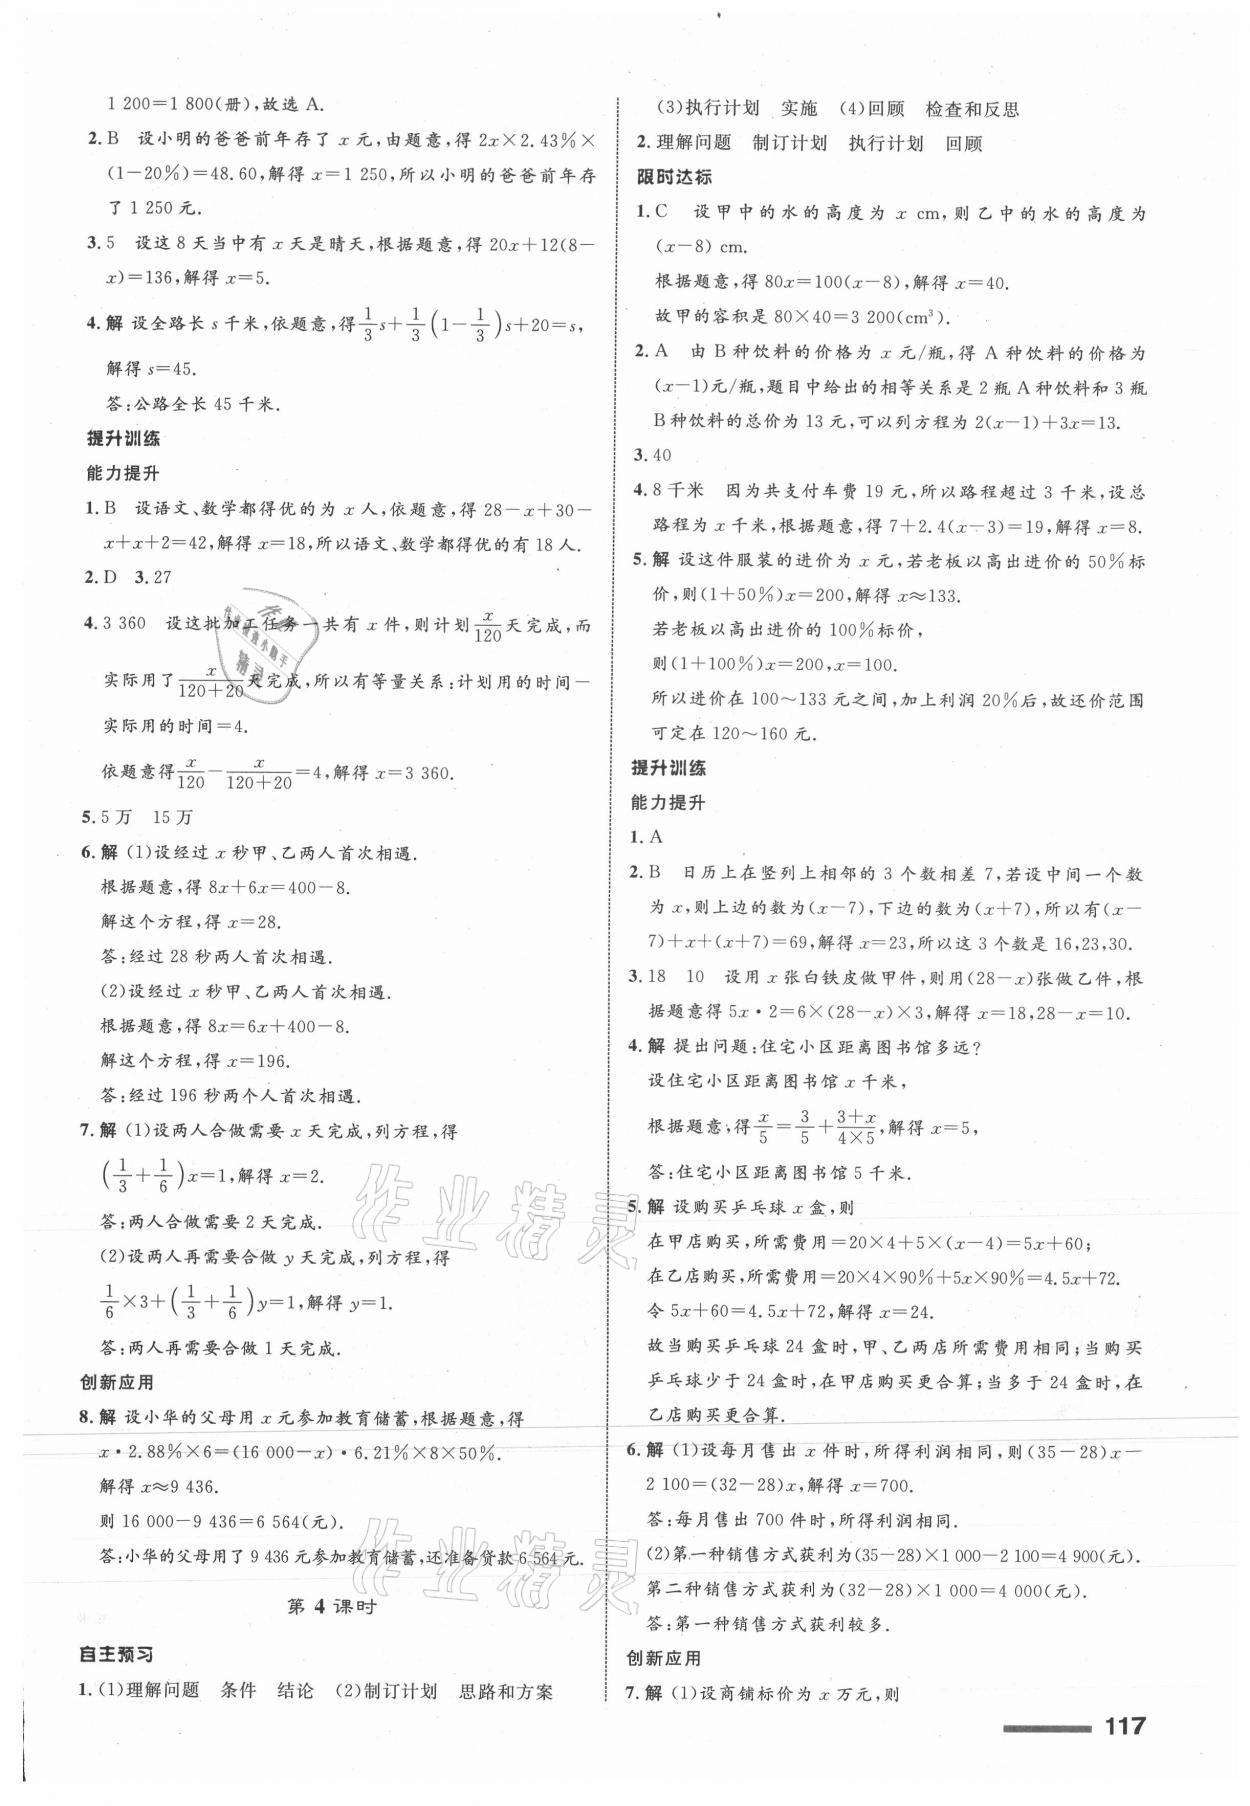 1 200=1 800(册),故选 A.
2. B 设小明的爸爸前年存了 x 元,由题意,得 2x×2.43%×
(1-20%)=48.60,解得 x=1 250,所以小明的爸爸前年存
了 1 250 元.
3. 5 设这 8 天当中有 x 天是晴天,根据题意,得 20x+12(8-
x)=136,解得 x=5.
4. 解 设全路长 s 千米,依题意,得 1/3 s+1/3(1-1/3)s+20=s,
解得 s=45.
答:公路全长 45 千米.
提升训练
能力提升
1. B 设语文、数学都得优的为 x 人,依题意,得 28-x+30-
x+x+2=42,解得 x=18,所以语文、数学都得优的有 18 人.
2. D 3. 27
4. 3 360 设这批加工任务一共有 x 件,则计划 x/120 天完成,而
实际用了 x/(120+20) 天完成,所以有等量关系:计划用的时间-
实际用的时间=4.
依题意得 x/120 - x/(120+20) =4,解得 x=3 360.
5. 5 万 15 万
6. 解 (1)设经过 x 秒甲、乙两人首次相遇.
根据题意,得 8x+6x=400-8.
解这个方程,得 x=28.
答:经过 28 秒两人首次相遇.
(2)设经过 x 秒甲、乙两人首次相遇.
根据题意,得 8x=6x+400-8.
解这个方程,得 x=196.
答:经过 196 秒两个人首次相遇.
7. 解 (1)设两人合做需要 x 天完成,列方程,得
(1/3+1/6)x=1,解得 x=2.
答:两人合做需要 2 天完成.
(2)设两人再需要合做 y 天完成,列方程,得
1/6×3+(1/3+1/6)y=1,解得 y=1.
答:两人再需要合做 1 天完成.
创新应用
8. 解 设小华的父母用 x 元参加教育储蓄,根据题意,得
x·2.88%×6=(16 000-x)·6.21%×8×50%.
解得 x≈9 436.
则 16 000-9 436=6 564(元).
答:小华的父母用了 9 436 元参加教育储蓄,还准备贷款 6 564 元.
第 4 课时
自主预习
1. (1)理解问题 条件 结论 (2)制订计划 思路和方案
(3)执行计划 实施 (4)回顾 检查和反思
2. 理解问题 制订计划 执行计划 回顾
限时达标
1. C 设甲中的水的高度为 x cm,则乙中的水的高度为
(x-8) cm.
根据题意,得 80x=100(x-8),解得 x=40.
故甲的容积是 80×40=3 200(cm³).
2. A 由 B 种饮料的价格为 x 元/瓶,得 A 种饮料的价格为
(x-1)元/瓶,题目中给出的相等关系是 2 瓶 A 种饮料和 3 瓶
B 种饮料的总价为 13 元,可以列方程为 2(x-1)+3x=13.
3. 40
4. 8 千米 因为共支付车费 19 元,所以路程超过 3 千米,设总
路程为 x 千米,根据题意,得 7+2.4(x-3)=19,解得 x=8.
5. 解 设这件服装的进价为 x 元,若老板以高出进价的 50%标
价,则(1+50%)x=200,解得 x≈133.
若老板以高出进价的 100%标价,
则(1+100%)x=200,x=100.
所以进价在 100~133 元之间,加上利润 20%后,故还价范围
可定在 120~160 元.
提升训练
能力提升
1. A
2. B 日历上在竖列上相邻的 3 个数相差 7,若设中间一个数
为 x,则上边的数为(x-7),下边的数为(x+7),所以有(x-
7)+x+(x+7)=69,解得 x=23,所以这 3 个数是 16,23,30.
3. 18 10 设用 x 张白铁皮做甲件,则用(28-x)张做乙件,根
据题意得 5x·2=6×(28-x)×3,解得 x=18,28-x=10.
4. 解 提出问题:住宅小区距离图书馆多远?
设住宅小区距离图书馆 x 千米,
根据题意,得 x/5=3/5+(3+x)/(4×5),解得 x=5,
答:住宅小区距离图书馆 5 千米.
5. 解 设购买乒乓球 x 盒,则
在甲店购买,所需费用=20×4+5×(x-4)=5x+60;
在乙店购买,所需费用=20×4×90%+5x×90%=4.5x+72.
令 5x+60=4.5x+72,解得 x=24.
故当购买乒乓球 24 盒时,甲、乙两店所需费用相同;当购买
乒乓球少于 24 盒时,在甲店购买更合算;当多于 24 盒时,在
乙店购买更合算.
6. 解 (1)设每月售出 x 件时,所得利润相同,则(35-28)x-
2 100=(32-28)x,解得 x=700.
答:每月售出 700 件时,所得利润相同.
(2)第一种销售方式获利为(35-28)×1 000-2 100=4 900(元).
第二种销售方式获利为(32-28)×1 000=4 000(元).
答:第一种销售方式获利较多.
创新应用
7. 解 (1)设商铺标价为 x 万元,则
117
作业精灵
作业精灵